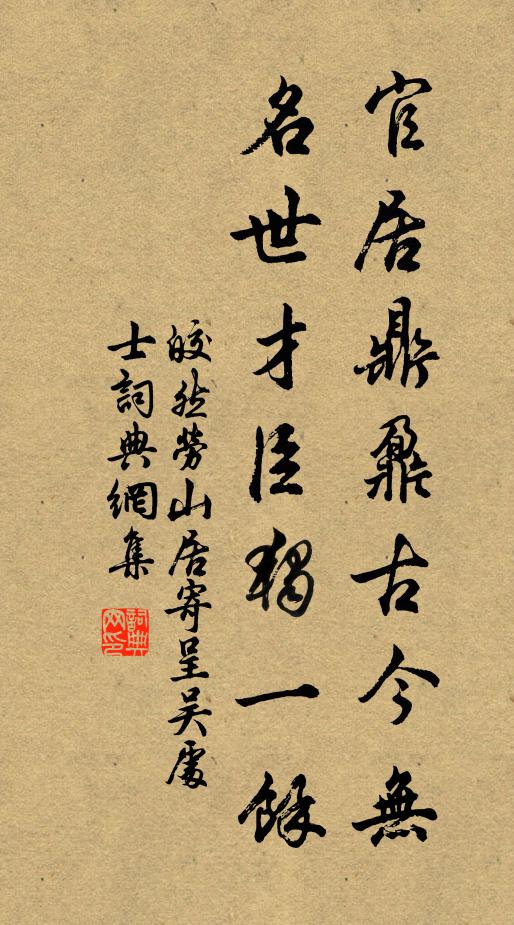 官居鼎鼐古今無
名世才臣獨一餘
皎然勞山居寄呈吳處
士詞典網集
詞典
网印